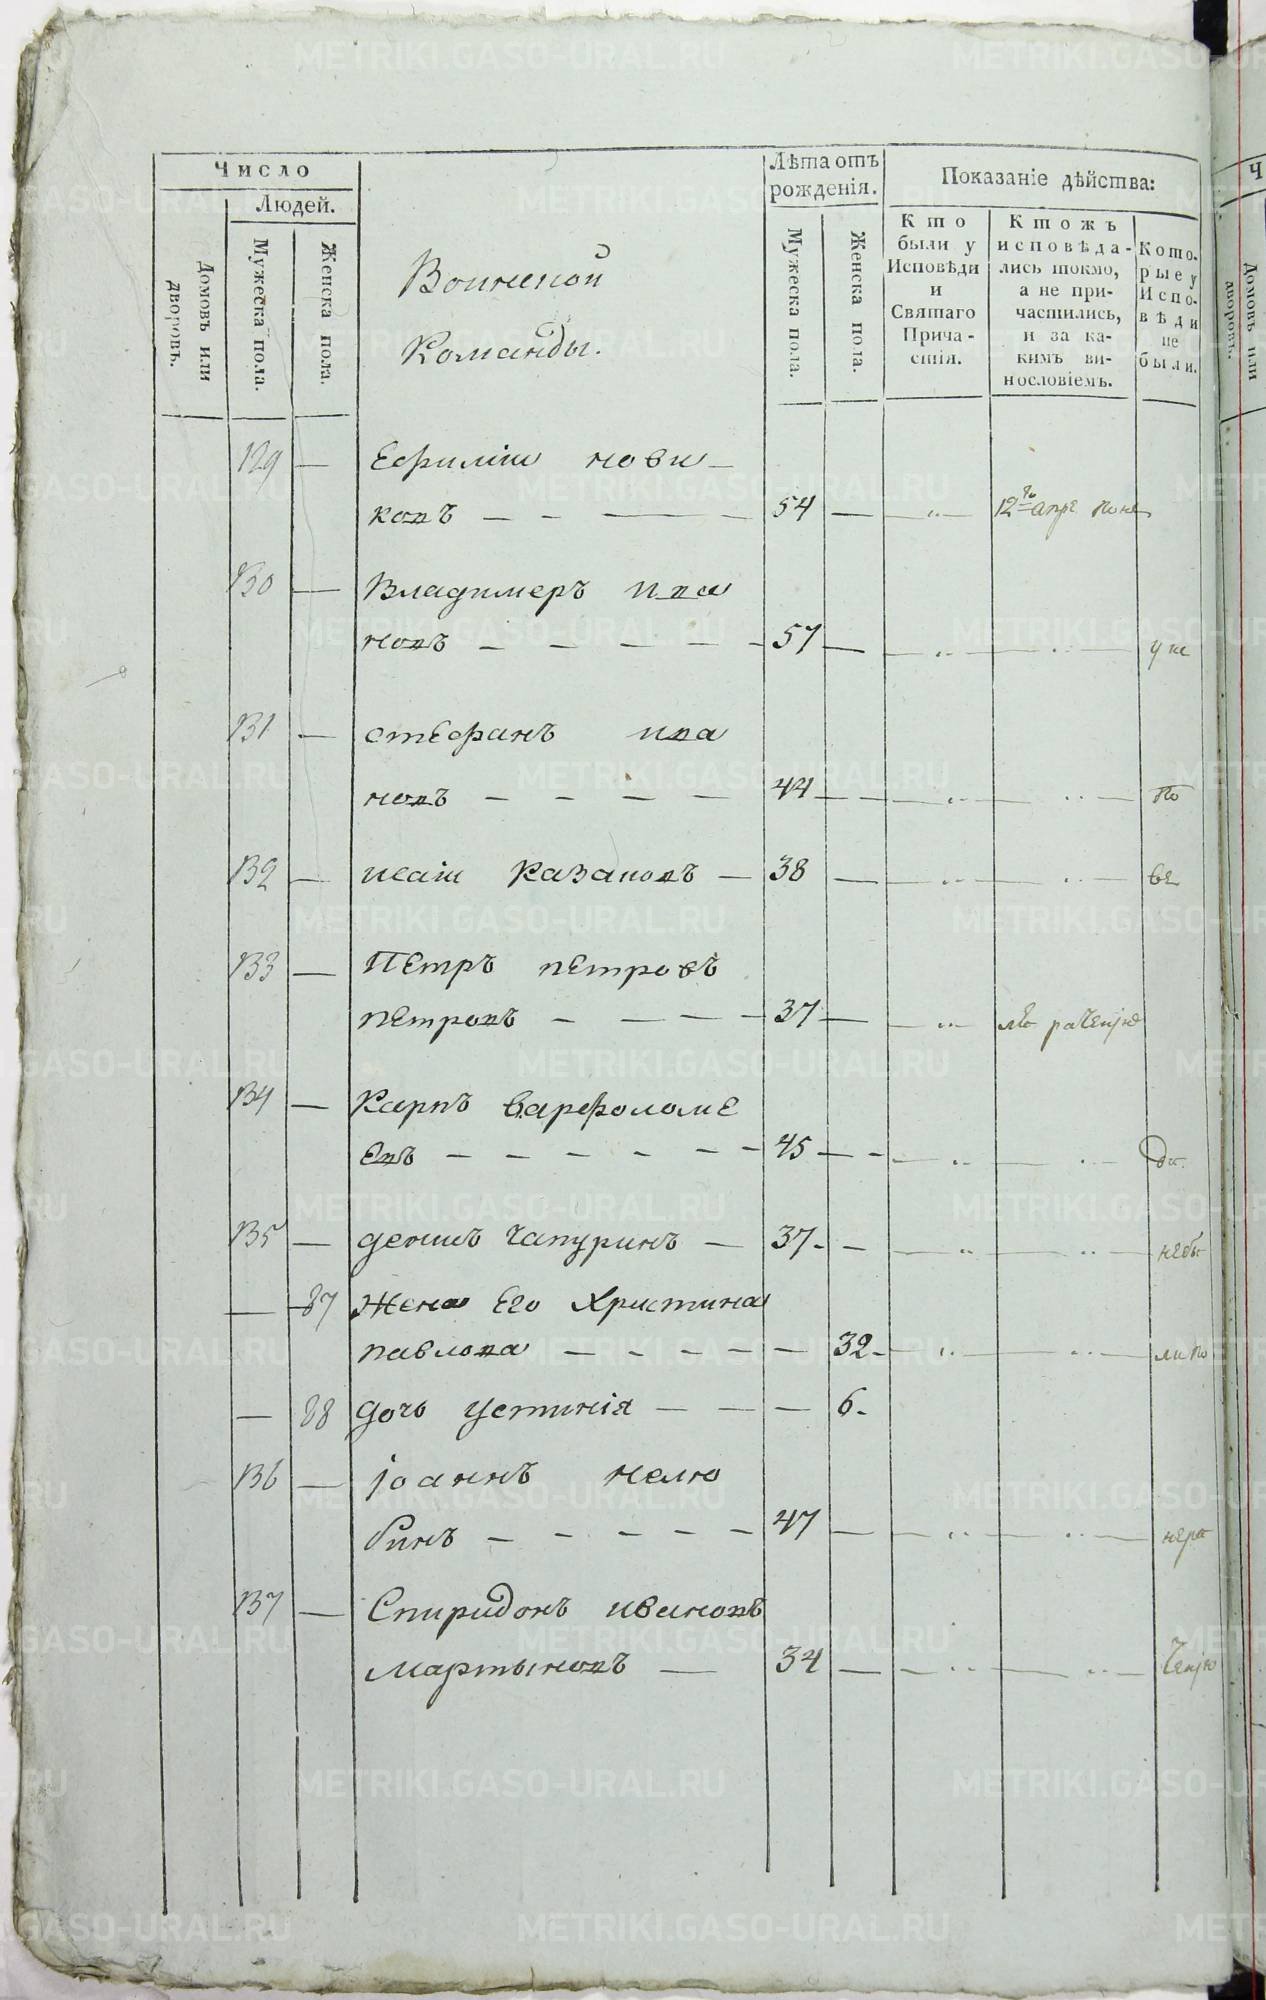 Число
Людей.
Домовъ или дворовъ.
Мужеска пола.
Женска пола.
Лѣта отъ рожденія.
Мужеска пола.
Женска пола.
Показаніе дѣйства:
Кто были у Исповѣди и Святаго Прича-стія.
Ктожъ исповѣда-лись токмо, а не при-частились, и за ка-кимъ ви-нословіемъ.
Кото-рые у Испо-вѣди не были.
Воинской
Команды.
129 — Ефимій нови —
ковъ — — — — 54 — — " — 12го апре
130 — Владимеръ ива
новъ — — — — — 57 — — " — — " —
131 — стефанъ ива
новъ — — — — 44 — — — " — — " — по
132 — исаій Казановъ — 38 — — " — — " — ве
133 — Петръ петровъ
петровъ — — — — 37 — — "
134 — Карпъ варфоломе
евъ — — — — — — 45 — — — " — — " —
135 — денисъ Чапуринъ — 37 — — — " — — " — небы
— 87 Жена Его Христина
павлова — — — — — 32 — — " — — " — ли по
— 88 дочь устинія — — — 6 —
136 — Іоаннъ нелю
бинъ — — — — — 47 — — " — — " — нера
137 — Спиридонъ ивановъ
мартыновъ — 34 — — " — — " —
METRIKI.GASO-URAL.RU